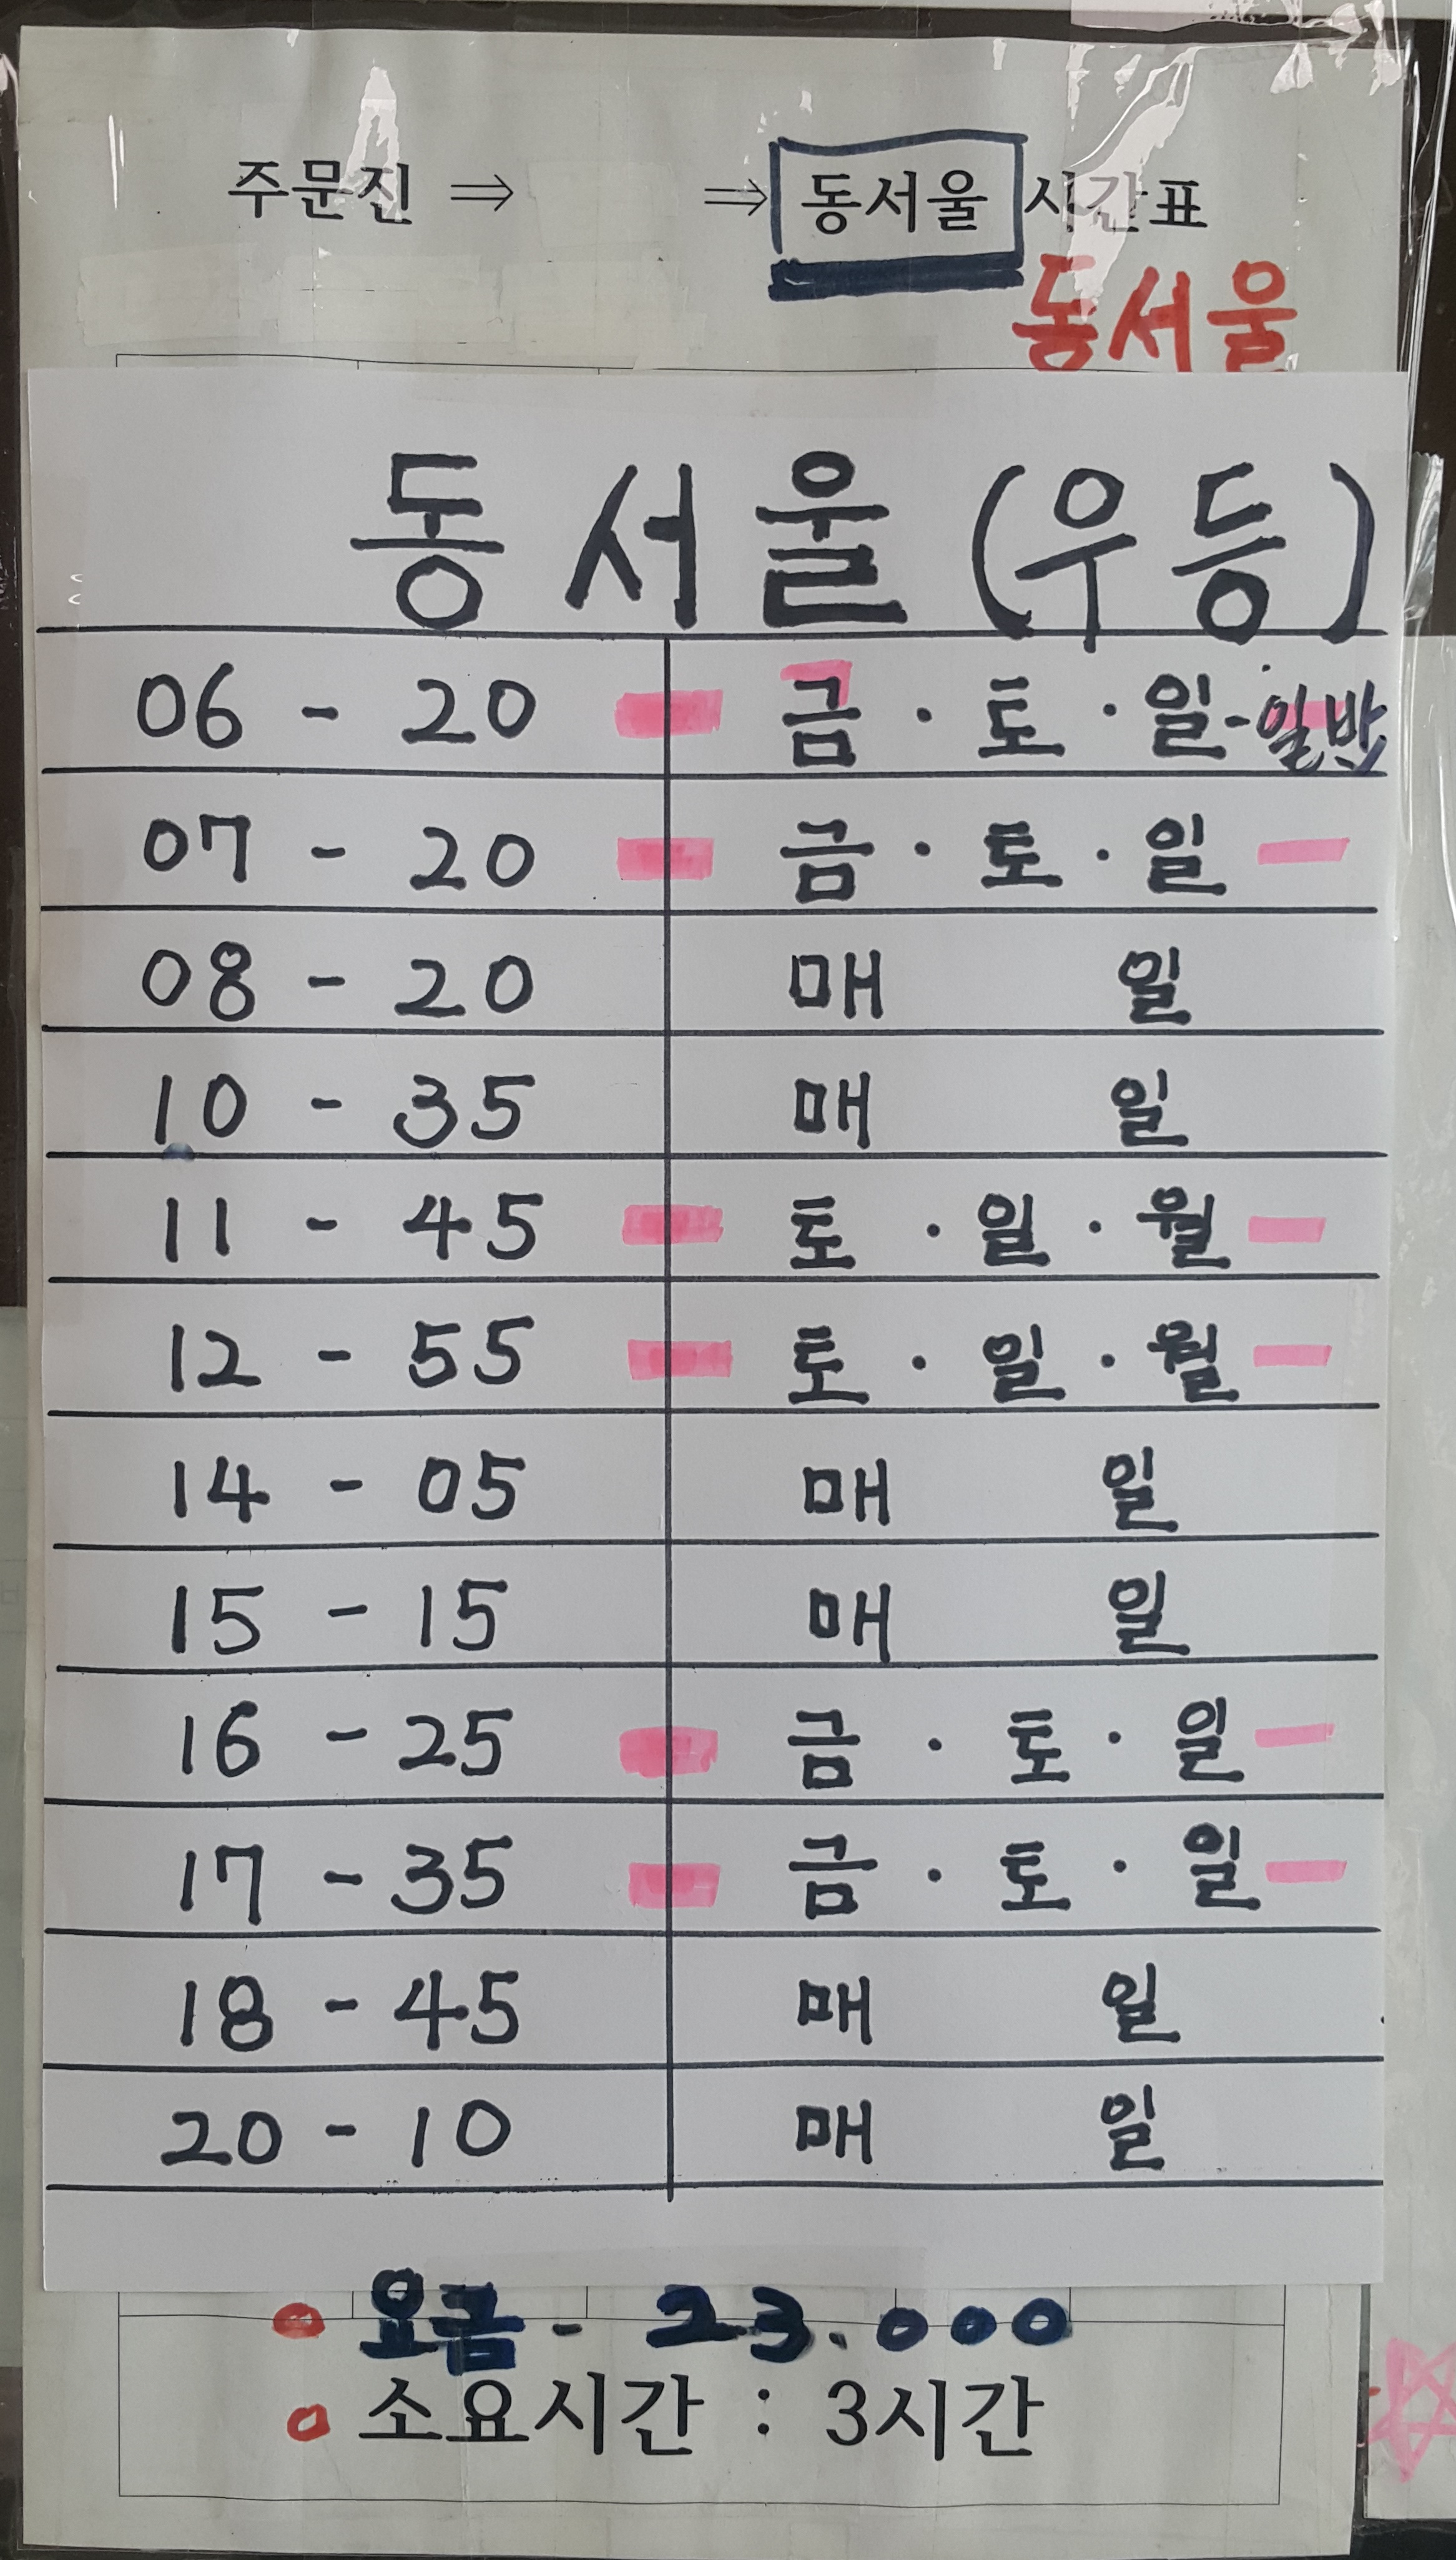 주문진 ⇒ ⇒ 동서울 시간표
동서울
동서울 (우등)
06 - 20 금 · 토 · 일 - 일반
07 - 20 금 · 토 · 일
08 - 20 매 일
10 - 35 매 일
11 - 45 토 · 일 · 월
12 - 55 토 · 일 · 월
14 - 05 매 일
15 - 15 매 일
16 - 25 금 · 토 · 일
17 - 35 금 · 토 · 일
18 - 45 매 일
20 - 10 매 일
요금 - 23.000
소요시간 : 3시간